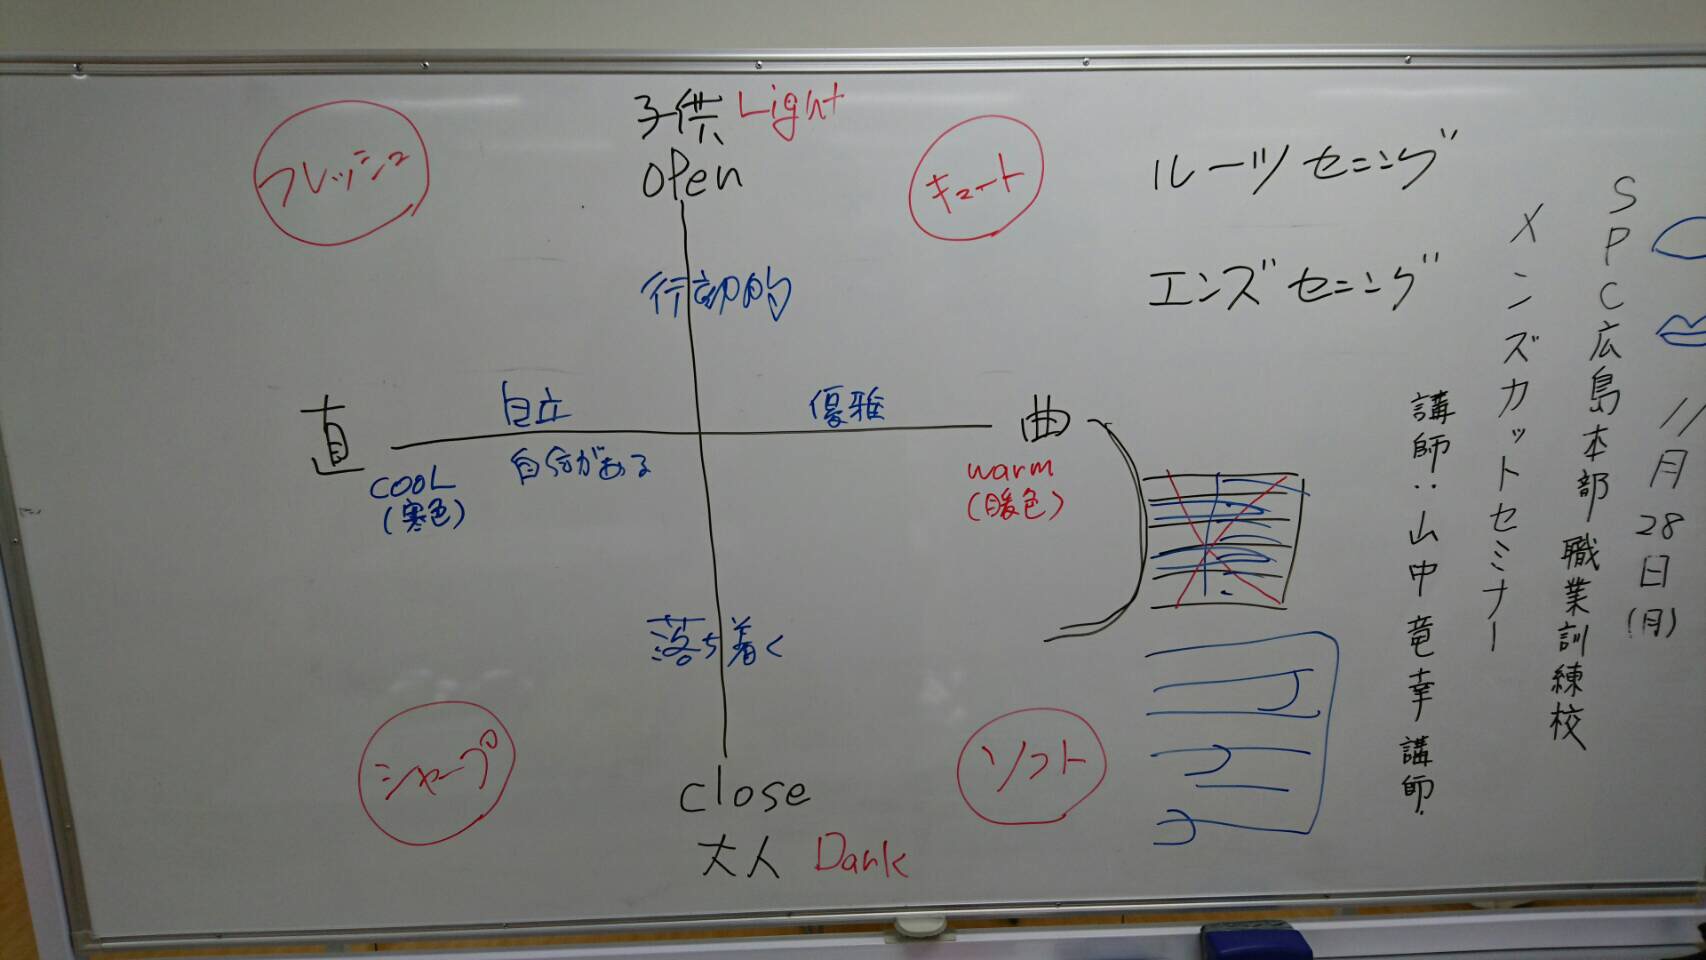 子供 Light
open
フレッシュ
キュート
行動的
自立
優雅
直
曲
自分がある
cooL
(寒色)
warm
(暖色)
落ち着く
シャープ
ソフト
close
大人 Dark
ルーツセニング
エンズセニング
11月28日(月)
SPC広島本部 職業訓練校
メンズカットセミナー
講師:山中竜幸講師